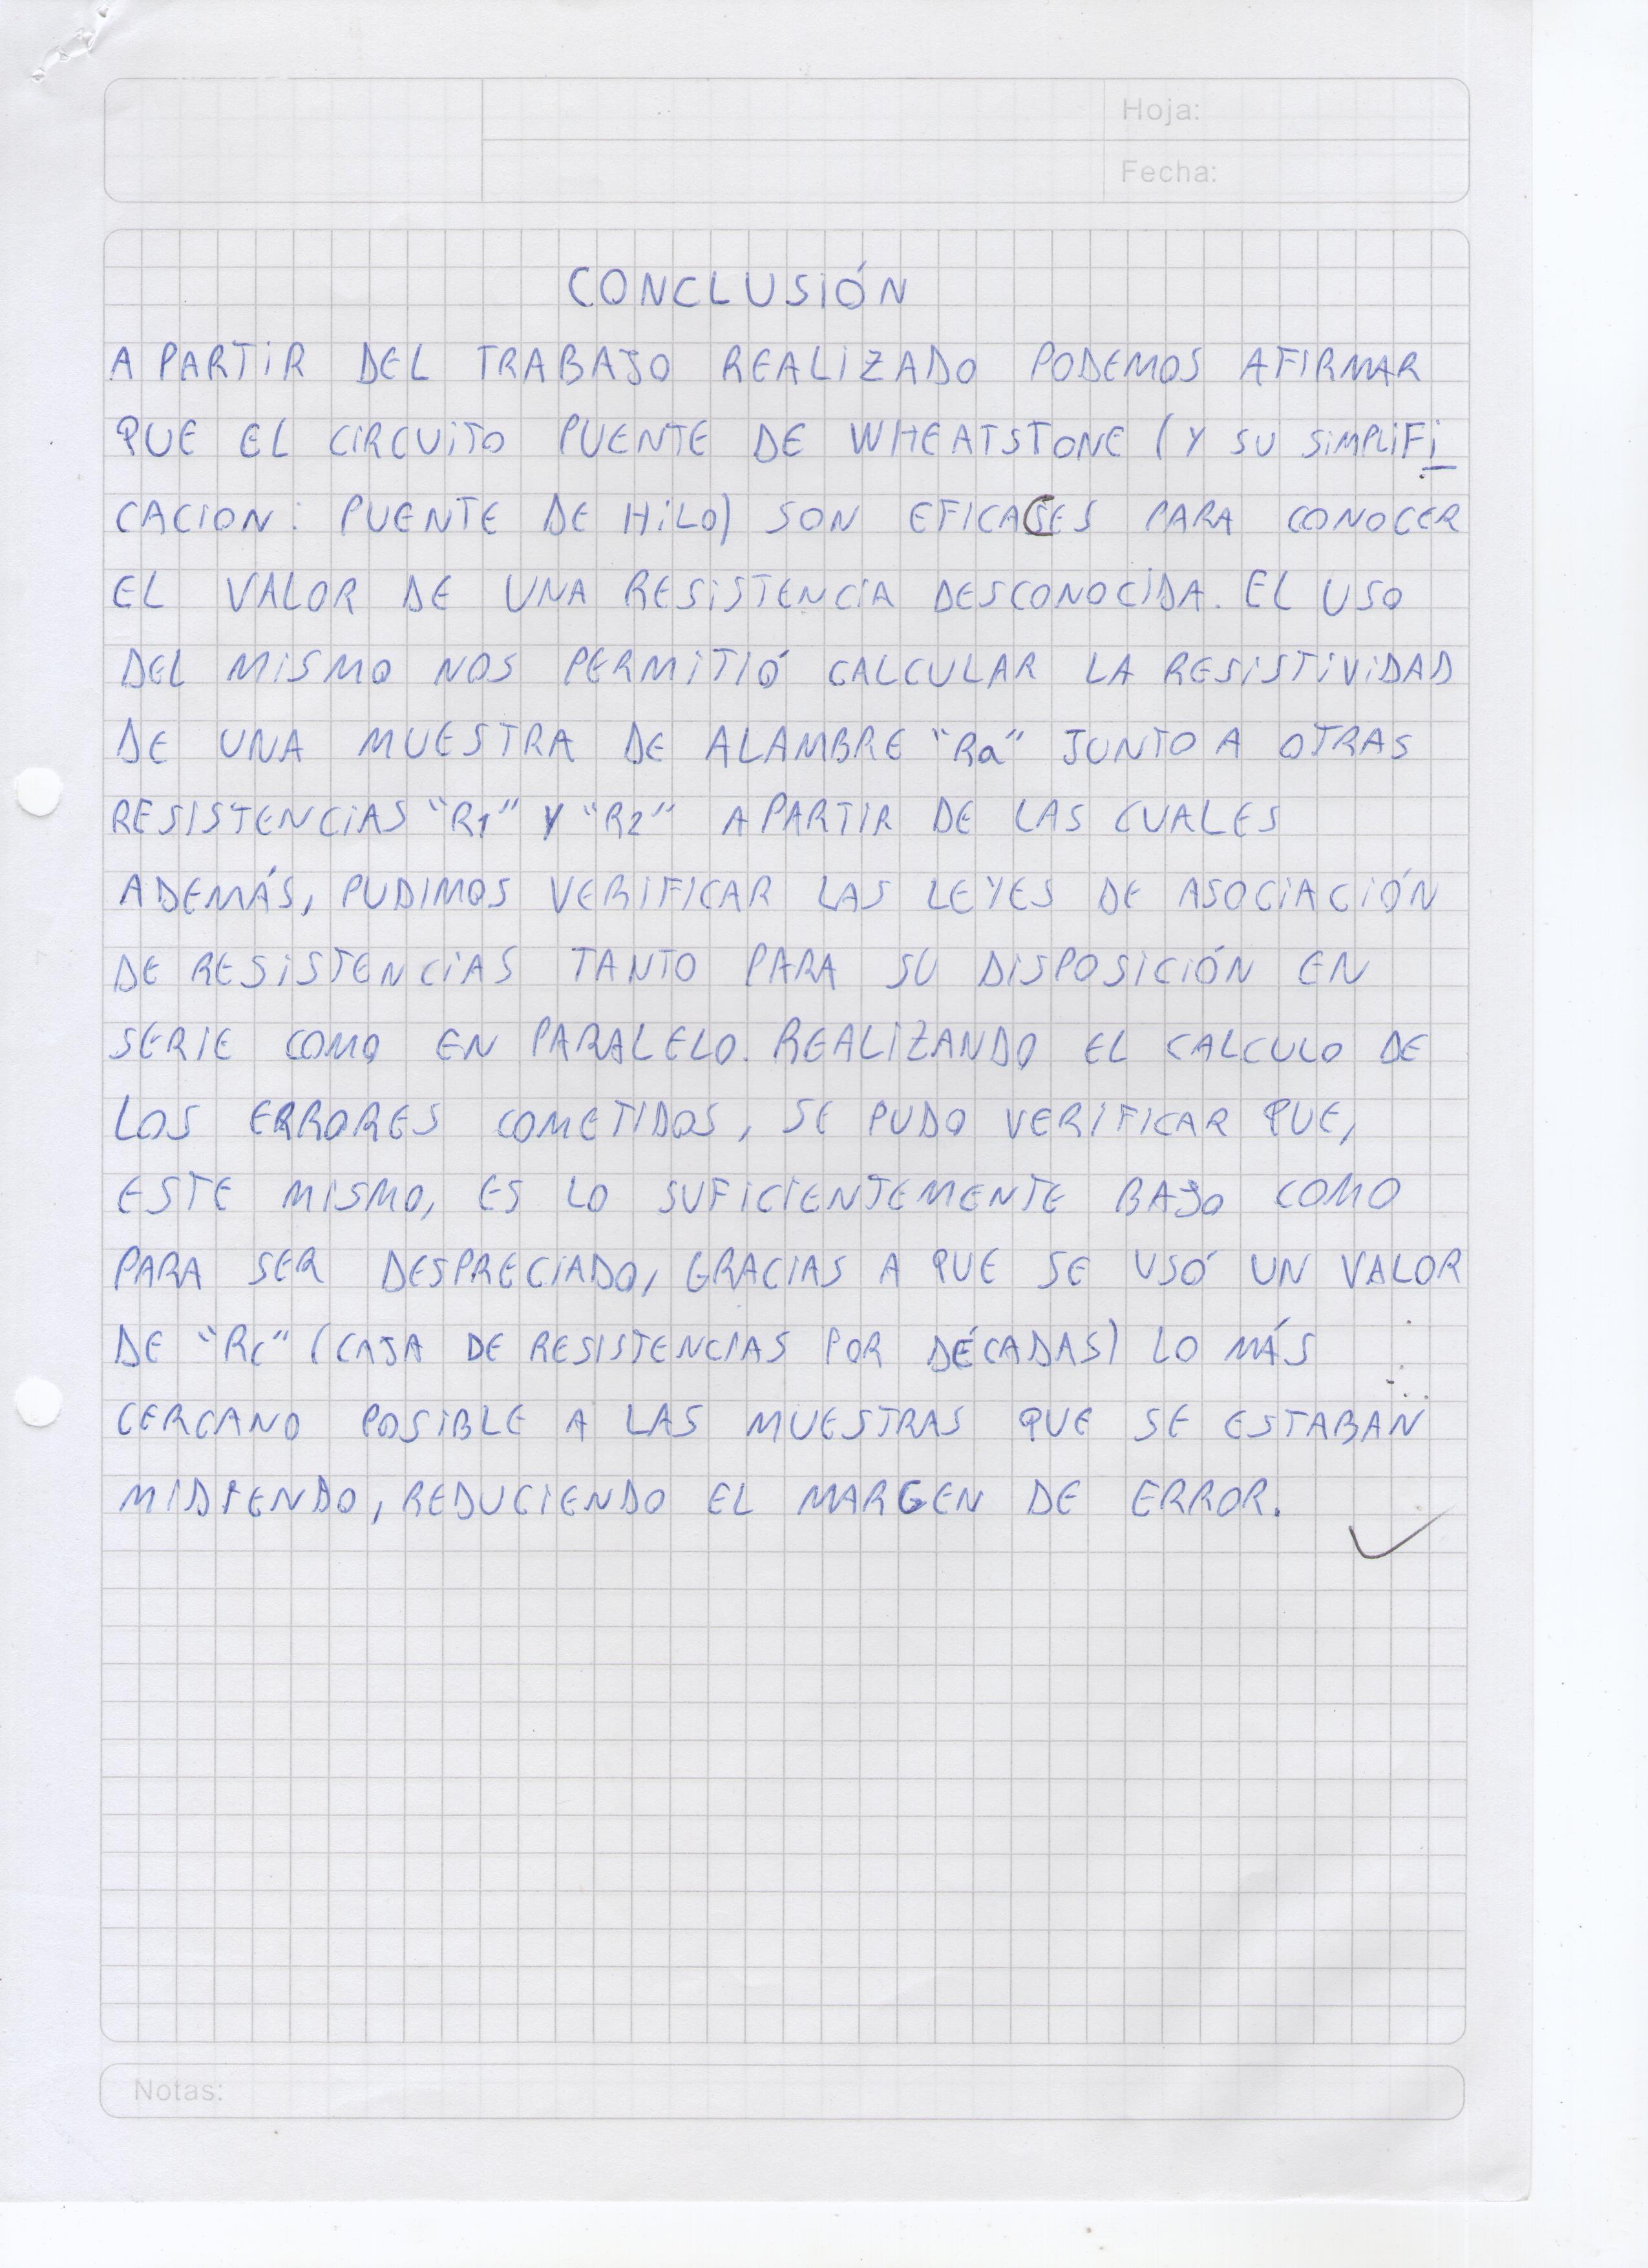 Hoja:
Fecha:
CONCLUSIÓN
A PARTIR DEL TRABAJO REALIZADO PODEMOS AFIRMAR
QUE EL CIRCUITO PUENTE DE WHEATSTONE (Y SU SIMPLIFI
CACION: PUENTE DE HILO) SON EFICACES PARA CONOCER
EL VALOR DE UNA RESISTENCIA DESCONOCIDA. EL USO
DEL MISMO NOS PERMITIÓ CALCULAR LA RESISTIVIDAD
DE UNA MUESTRA DE ALAMBRE "Ra" JUNTO A OTRAS
RESISTENCIAS "R1" Y "R2" A PARTIR DE LAS CUALES
ADEMÁS, PUDIMOS VERIFICAR LAS LEYES DE ASOCIACIÓN
DE RESISTENCIAS TANTO PARA SU DISPOSICIÓN EN
SERIE COMO EN PARALELO. REALIZANDO EL CALCULO DE
LOS ERRORES COMETIDOS, SE PUDO VERIFICAR QUE,
ESTE MISMO, ES LO SUFICIENTEMENTE BAJO COMO
PARA SER DESPRECIADO, GRACIAS A QUE SE USÓ UN VALOR
DE "Rc" (CAJA DE RESISTENCIAS POR DÉCADAS) LO MÁS
CERCANO POSIBLE A LAS MUESTRAS QUE SE ESTABAN
MIDIENDO, REDUCIENDO EL MARGEN DE ERROR.
Notas: